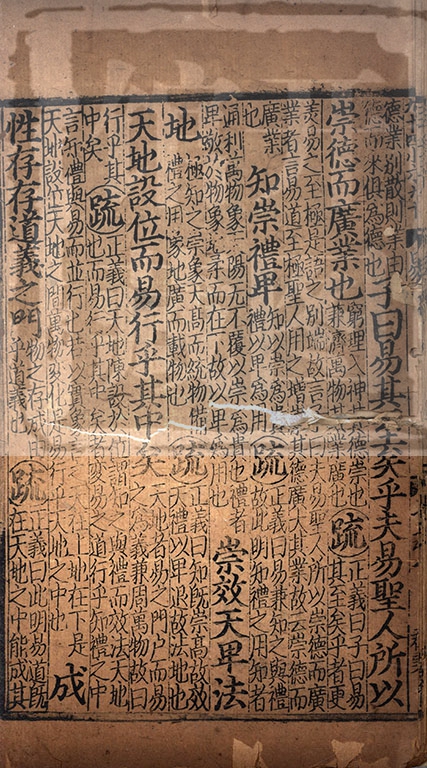 德業別散則業由
德而來俱為德也
子曰易其至矣乎夫易聖人所以
崇德而廣業也
窮理入神其德崇也
兼濟萬物其業廣也
疏
正義曰子曰易
其至矣乎者更
美易之至極是語之別端故言子曰夫易聖人所以崇德而廣
業者言易道至極聖人用之增崇其德廣大其業故云崇德而
廣業
知崇禮卑
知以崇為貴
禮以卑為用
疏
正義曰易兼知之與禮
故此明知禮之用知者
通利萬物象天陽无不覆以崇為貴也禮者
卑敬於物象地柔而在下故以卑為用也
崇效天卑法
地
極知之崇象天高而統物備
禮之用象地廣而載物也
疏
正義曰知既崇高故效
天禮以卑退故法地也
天地設位而易行乎其中矣
天地者易之門戶而易
之為義兼周萬物故曰
行乎其
中矣
疏
正義曰天地陳設於位謂知之與禮而效法天地
也而易行乎其中矣者變易之道行乎知禮之中
言知禮與易而並行也若以實象言之天在上地在下是
天地設位天地之間萬物變化是易行乎天地之中也
成
性存存道義之門
物之存成由
乎道義也
疏
正義曰此明易道既
在天地之中能成其